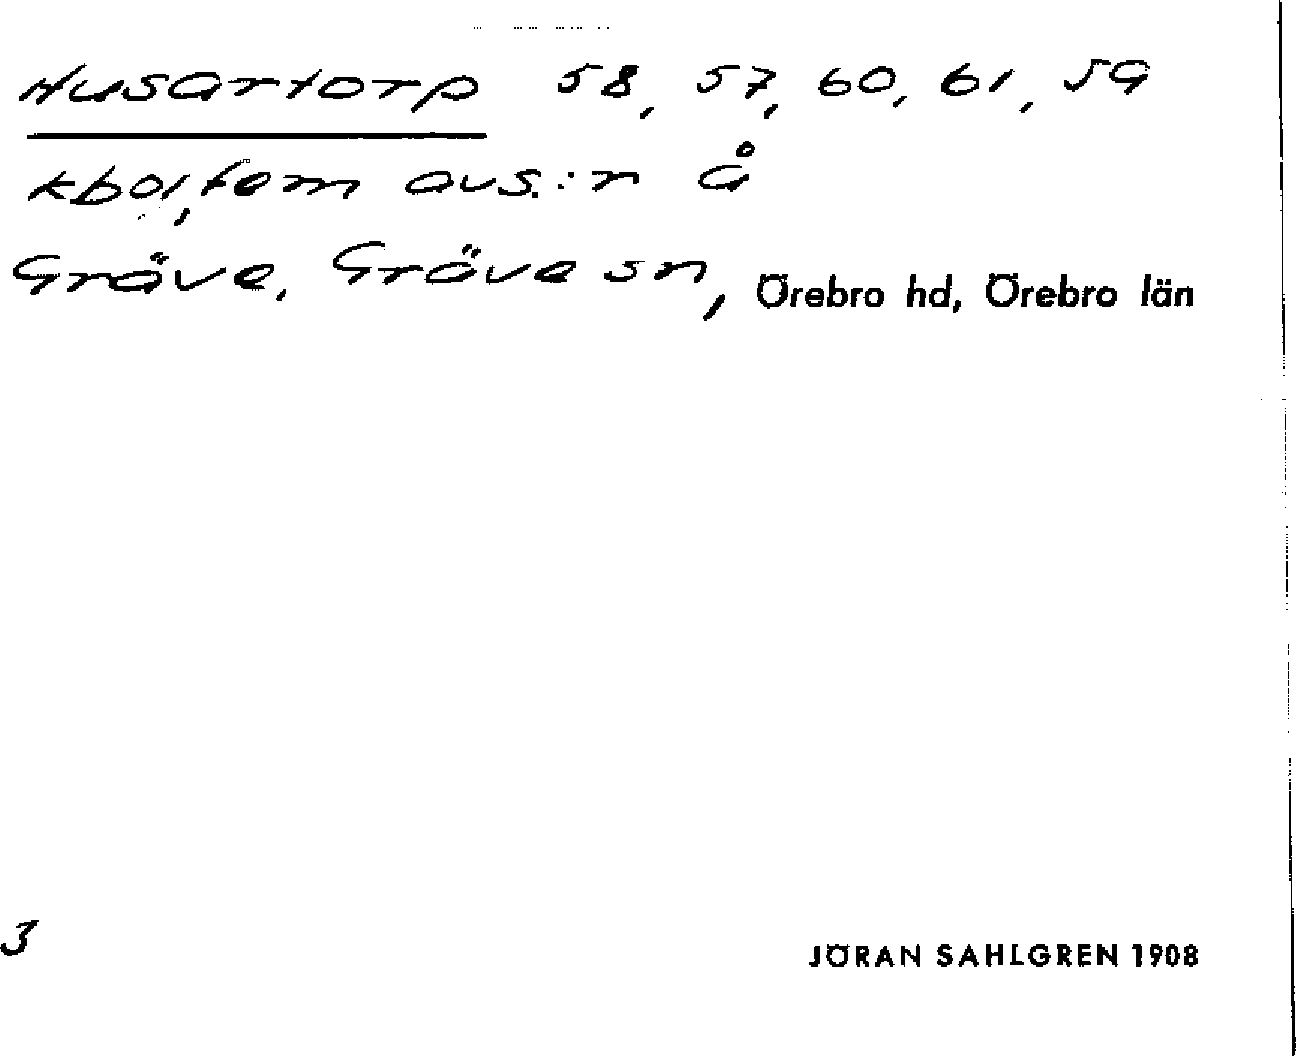 Husartorp 58, 57, 60, 61, 59
kbol, fem avs.:r å
Gräve, Gräve sn, Örebro hd, Örebro län
3
JÖRAN SAHLGREN 1908